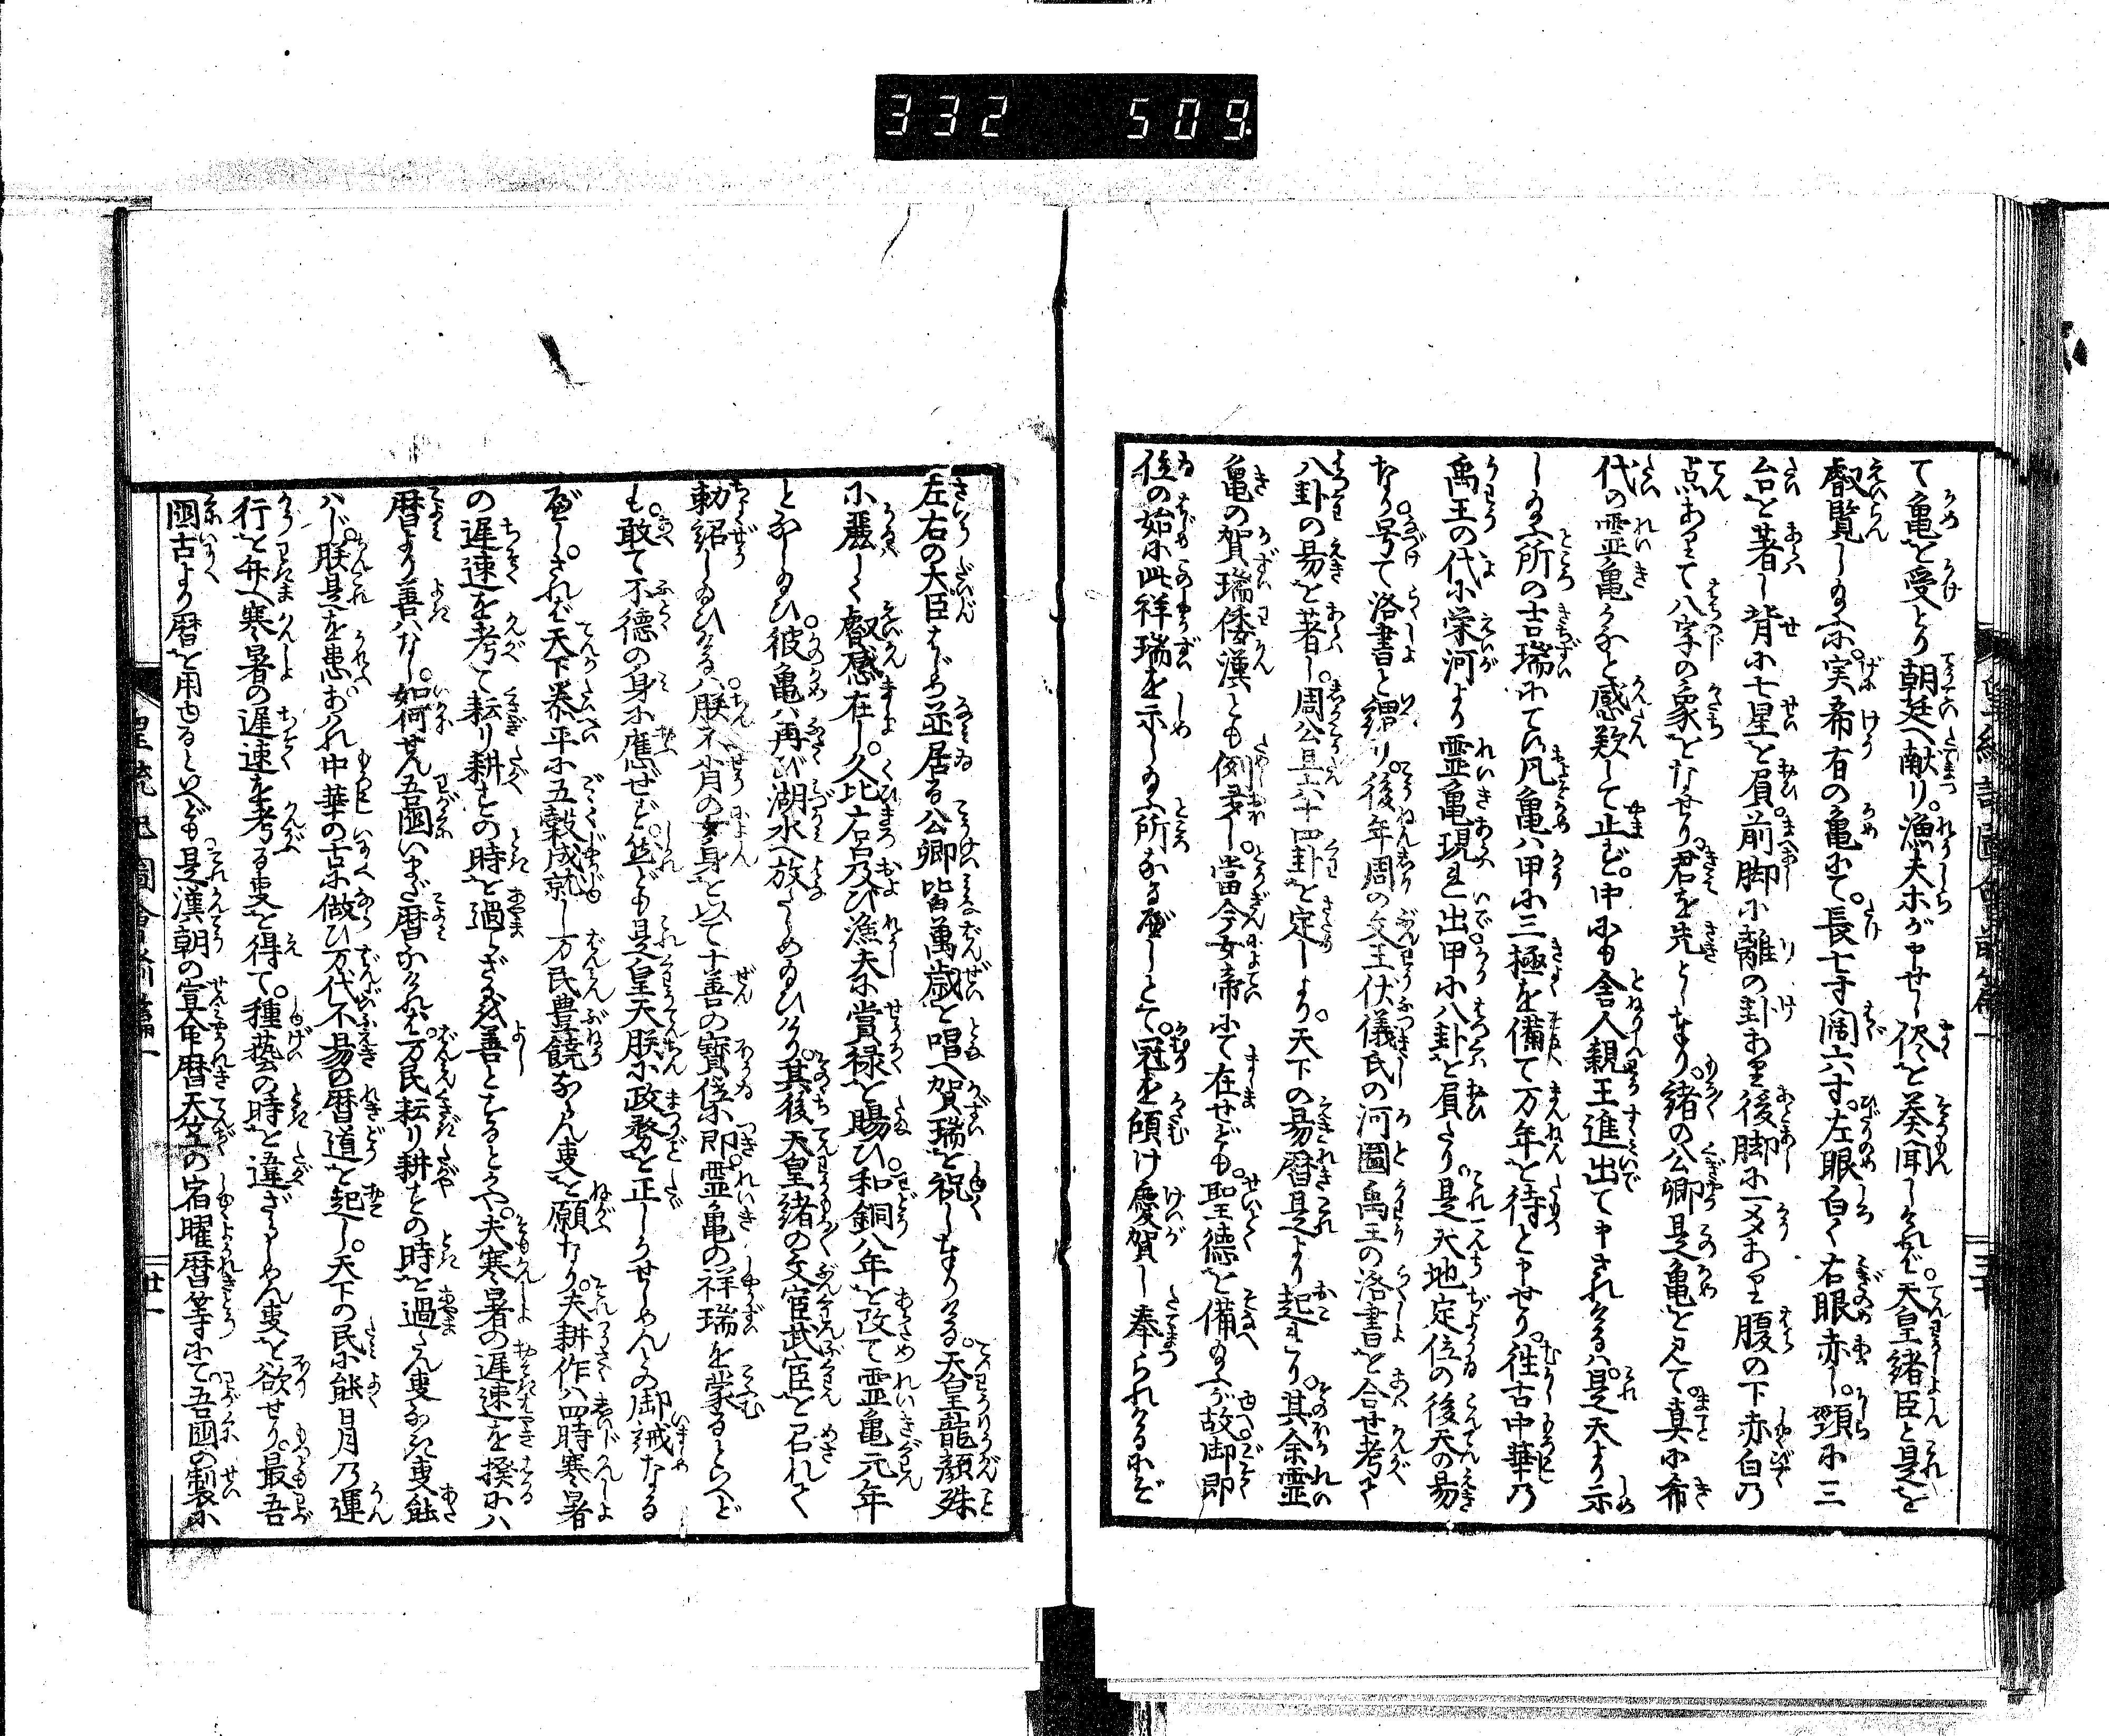 332 509
て亀を受とり朝廷へ献り。漁夫ホが申せし侭を奏聞しければ。天皇緒臣と是を
叡覧し給ふに。実希有の亀にて。長七寸濶六寸。左眼白く右眼赤し。頸に三
台を著し背に七星を負。前脚に離の卦あり後脚に一爻あり腹の下赤白の
点ありて八字の象をなせり。君を先とし奉り。緒の公卿是亀を見て。真に希
代の霊亀かなと感歎して止ず。中にも舎人親王進出て申されけるハ。是天より示
し給ふ所の吉瑞にて候。凡亀ハ甲に三極を備て万年を待と申せり。往古中華乃
禹王の代に栄河より霊亀現れ出甲に八卦を負たり。是天地定位の後天の易
なり。号て洛書と謂り。後年周の文王伏儀氏の河圖禹王の洛書を合せ考て
八卦の易を著し。周公旦六十四卦を定しより。天下の易暦是より起れり。其余霊
亀の賀瑞倭漢とも例多し。當今女帝にて在せども。聖徳を備給ふが故御即
位の始に此祥瑞を示し給ふ所なるべしとて。冠を傾け慶賀し奉られけるにぞ
左右の大臣はじめ並居る公卿皆萬歳を唱へ賀瑞を祝し奉りける。天皇龍顔殊
に麗しく叡感在し。久比広呂及び漁夫に賞禄を賜ひ。和銅八年を改て霊亀元年
となし給ひ。彼亀ハ再び湖水へ放しめ給ひけり。其後天皇緒の文官武官を召れて
勅紹し給ひけるハ。朕不肖の女身を以て十善の寶位に即。霊亀の祥瑞を蒙るといへど
も。敢て不徳の身に應ぜず。然ども是皇天朕に政務を正しうせしめんの御誡なる
べし。されば天下泰平に五穀成就し万民豊饒ならん事を願なり。夫耕作ハ四時寒暑
の遅速を考て耘り耕すの時を過ざるを善とするとかや。夫寒暑の遅速を揆にハ
暦より善ハなし。如何せん五國いまだ暦なければ。万民耘り耕すの時を過らん事なき事能
ハじ。朕是を患。あハれ中華の古に做ひ万代不易の暦道を起し。天下の民に能日月乃運
行を弁へ寒暑の遅速を考る事を得て。種藝の時を違ざらしめん事を欲せり。最吾
國古より暦を用ゆるといへども。是漢朝の宣命暦天竺の宿曜暦等にて。吾國の製に
皇統記圖會前篇一
三十
皇統記圖會前篇一
丗一